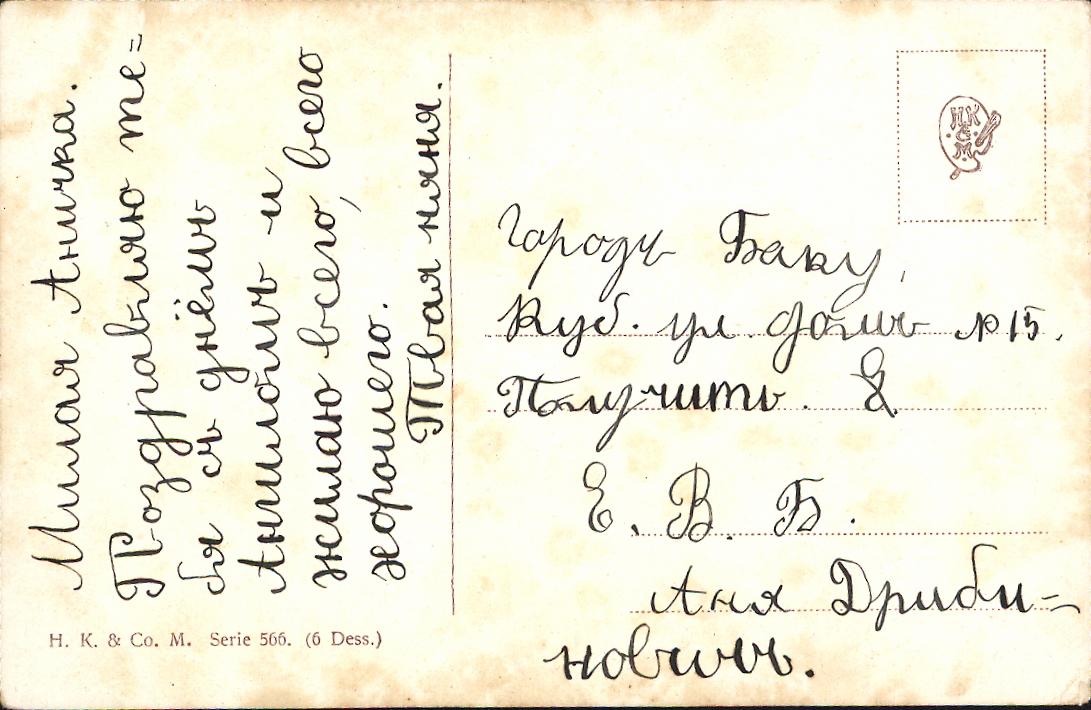 Милая Аничка.
Поздравляю те=
бя съ днёмъ
Ангилоёмъ и
жилаю всего, всего
хорошего.
Твая няня.
H. K. & Co. M. Serie 566. (6 Dess.)
H K
&
M.
Городъ Баку,
Куб. ул. домъ № 15.
Получить.
Е. В. Б.
Аня Дриби=
новичъ.